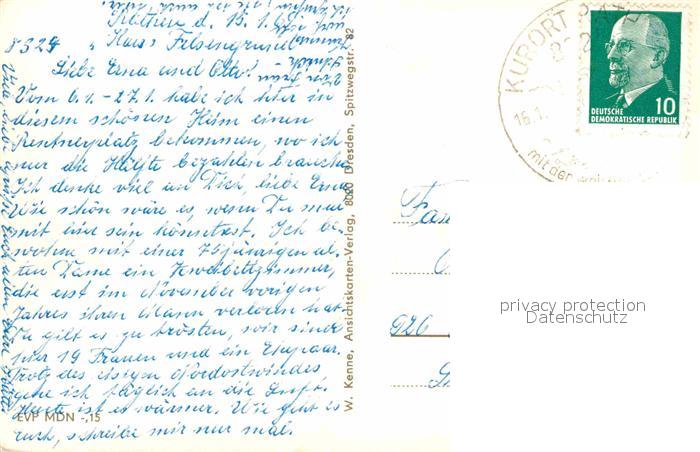 Rathen d. 15.1.6
8324 "Haus Felsengrund"
Liebe Erna und Otto!
Vom 6.1. - 27.1. habe ich hier in
diesem schönen Heim einen
Rentnerplatz bekommen, wo ich
nur die Hälfte bezahlen brauche.
Ich denke viel an Dich, liebe Erna
Wie schön wäre es, wenn Du mal
mit eine sein könntest. Ich be-
wohne mit einer 75jährigen al-
ten Dame ein Zweibettzimmer,
die erst im November vorigen
Jahres ihren Mann verloren hat.
Da gilt es zu trösten, wir sind
hier 19 Frauen und ein Ehepaar.
Trotz des eisigen Nordostwindes
gehe ich täglich an die Luft.
Heute ist es wärmer. Wie geht es
Euch, schreibe mir nur mal.
Viele liebe Grüße Euch allen
EVP MDN -,15
W. Kenne, Ansichtskarten-Verlag, 8020 Dresden, Spitzwegstr. 82
KURORT
16.1.
mit der
10
DEUTSCHE
DEMOKRATISCHE REPUBLIK
Fam
926
privacy protection
Datenschutz